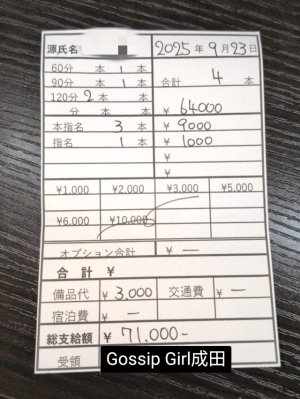 源氏名
2025年9月23日
60分 本 1 本
90分 本 1 本
合計 4 本
120分 2 本 本
分 本 本
¥ 64000
本指名 3 本
¥ 9000
指名 1 本
¥ 1000
¥
¥
¥1,000 ¥2,000 ¥3,000 ¥5,000
¥6,000 ¥10,000
オプション合計 ¥ ー
合計 ¥
備品代 ¥ 3,000 交通費 ¥ ー
宿泊費 ¥ ー
総支給額 ¥ 71,000-
受領
Gossip Girl成田